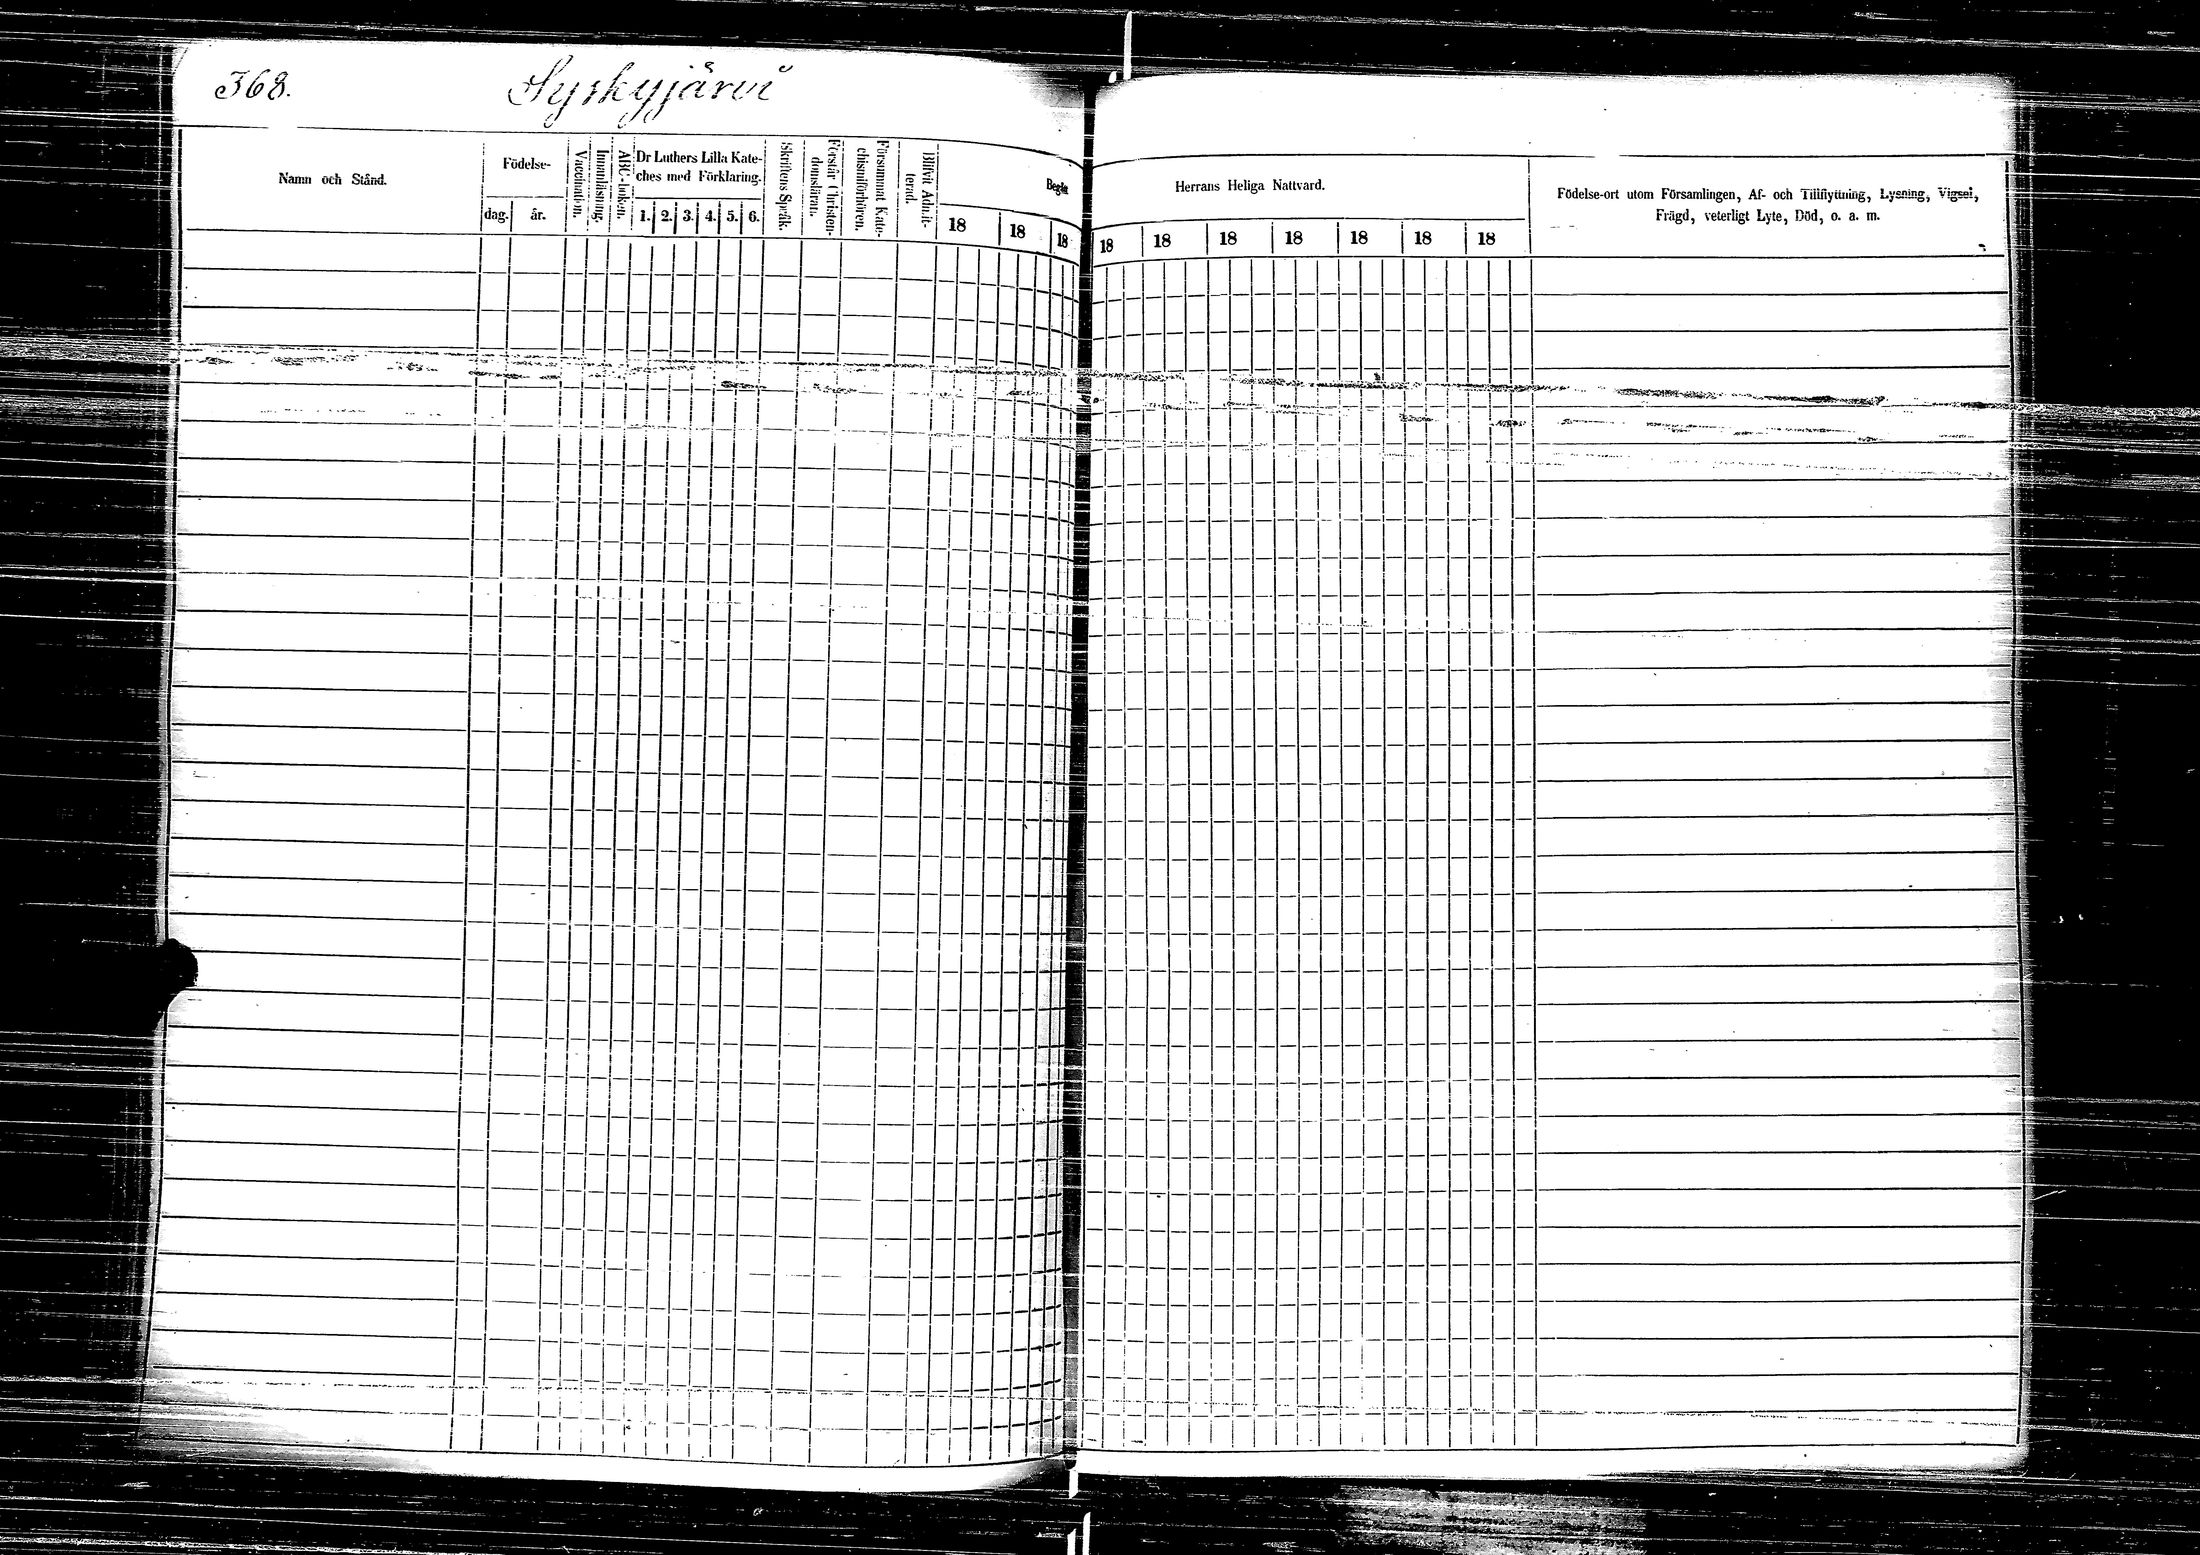 368.
Syskyjärvi
Namn och Stånd.
Födelse-
dag. år.
Vaccination.
Innanläsning.
ABC-boken.
Dr Luthers Lilla Kate-
ches med Förklaring.
1. 2. 3. 4. 5. 6.
Skriftens Språk.
Förstår Christen-
domsläran.
Försummat Kate-
chismiförhören.
Blifvit Admit-
terad.
Begått
18 18 18
Herrans Heliga Nattvard.
18 18 18 18 18 18 18
Födelse-ort utom Församlingen, Af- och Tillflyttning, Lysning, Vigsel,
Frägd, veterligt Lyte, Död, o. a. m.